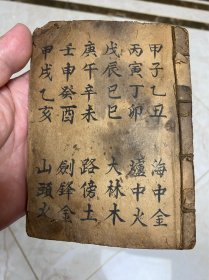 甲子乙丑 海中金
丙寅丁卯 爐中火
戊辰己巳 大林木
庚午辛未 路傍土
壬申癸酉 劍鋒金
甲戌乙亥 山頭火